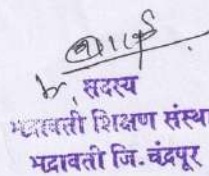 सदस्य
भद्रावती शिक्षण संस्था
भद्रावती जि. चंद्रपूर